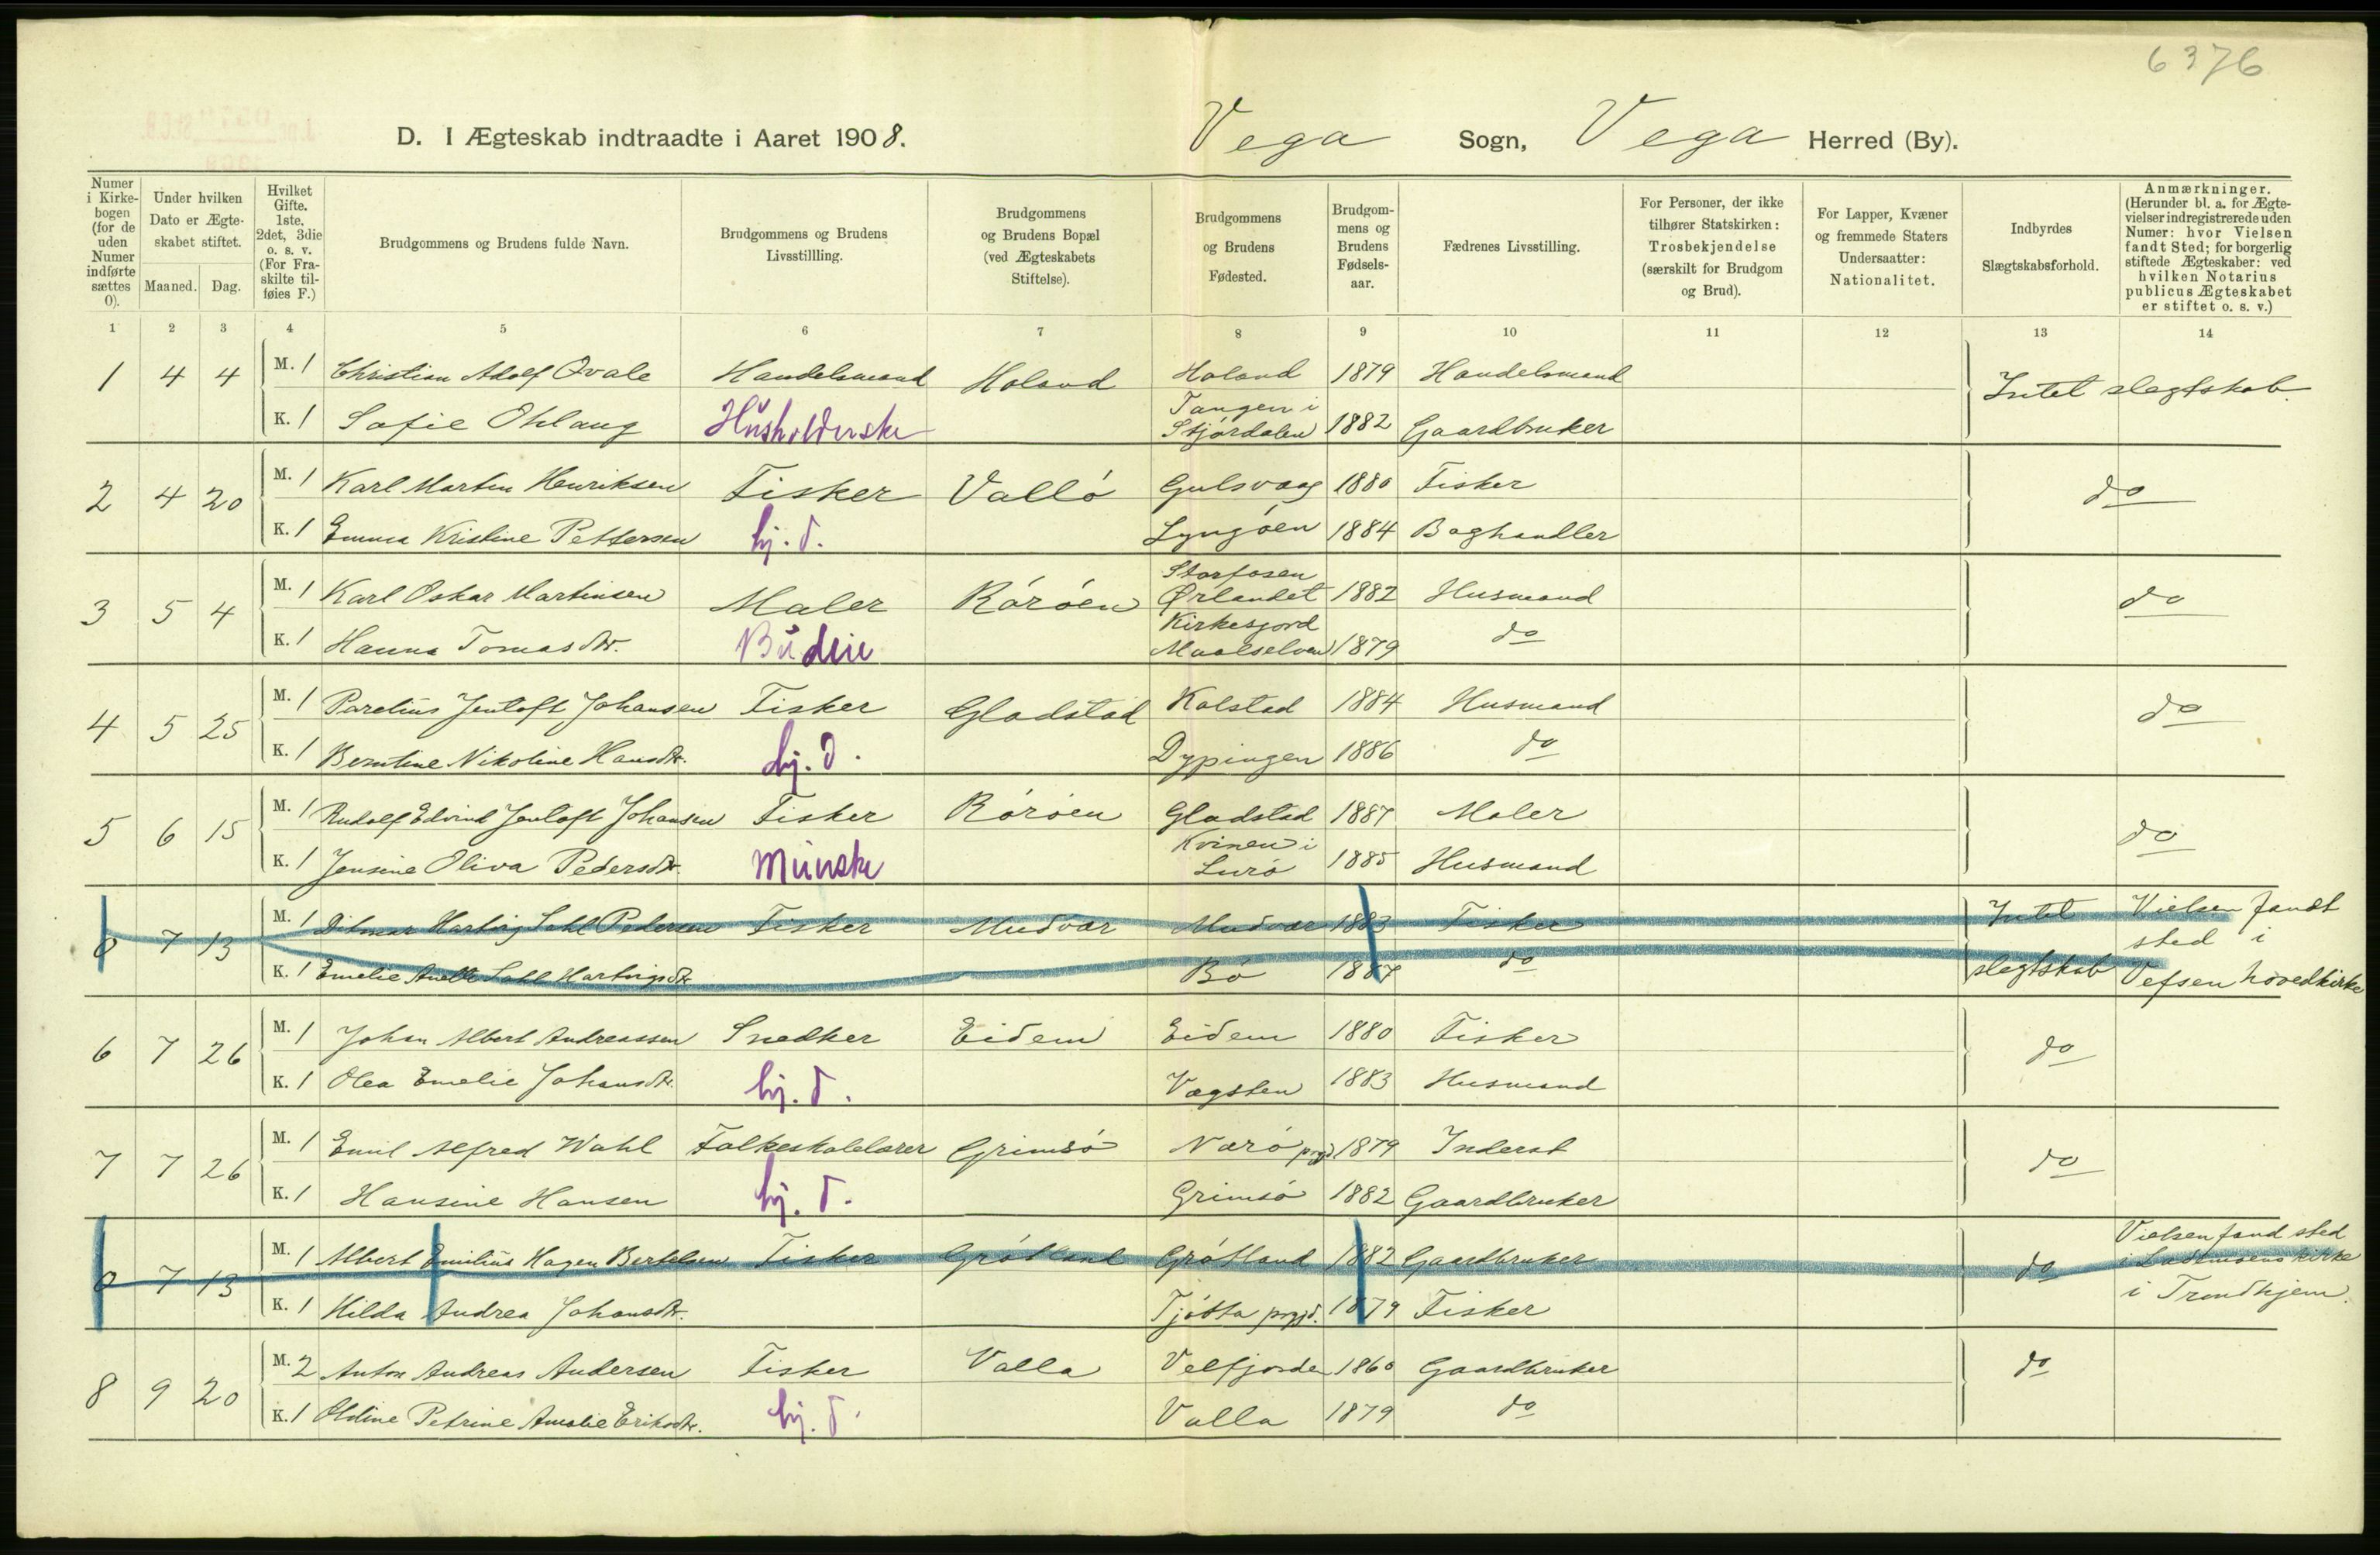 6376
D. I Ægteskab indtraadte i Aaret 1908. Vega Sogn, Vega Herred (By).
Numer i Kirke- bogen (for de uden Numer indførte sættes 0).
Under hvilken Dato er Ægte- skabet stiftet.
Maaned. Dag.
Hvilket Gifte. 1ste, 2det, 3die o. s. v. (For Fra- skilte til- føies F.)
Brudgommens og Brudens fulde Navn.
Brudgommens og Brudens Livsstillling.
Brudgommens og Brudens Bopæl (ved Ægteskabets Stiftelse).
Brudgommens og Brudens Fødested.
Brudgom- mens og Brudens Fødsels- aar.
Fædrenes Livsstilling.
For Personer, der ikke tilhører Statskirken: Trosbekjendelse (særskilt for Brudgom og Brud).
For Lapper, Kvæner og fremmede Staters Undersaatter: Nationalitet.
Indbyrdes Slægtskabsforhold.
Anmærkninger. (Herunder bl. a. for Ægte- vielser indregistrerede uden Numer: hvor Vielsen fandt Sted; for borgerlig stiftede Ægteskaber: ved hvilken Notarius publicus Ægteskabet er stiftet o. s. v.)
1 2 3 4 5 6 7 8 9 10 11 12 13 14
1 4 4 M. 1 Christian Adolf Qvale Handelsmand Holand Holand 1879 Handelsmand Intet slegtskab.
K. 1 Sofie Ohlaug Husholderske Tangen i Stjørdalen 1882 Gaardbruker
2 4 20 M. 1 Karl Martin Henriksen Fisker Vallø Gulsvaag 1880 Fisker do
K. 1 Emma Kristine Pettersen hj. d. Lyngøen 1884 Boghandler
3 5 4 M. 1 Karl Oskar Martinsen Maler Rørøen Storfosen Ørlandet 1882 Husmand do
K. 1 Hanna Tomasdtr. Budeie Kirkesjord Maalselven 1879 do
4 5 25 M. 1 Parelius Jentoft Johansen Fisker Gladstad Kolstad 1884 Husmand do
K. 1 Berntine Nikoline Hansdtr. hj. d. Dypingen 1886 do
5 6 15 M. 1 Rudolf Edvind Jentoft Johansen Fisker Rørøen Gladstad 1887 Maler do
K. 1 Jensine Oliva Pedersdtr. Kvinen i Lurø 1885 Husmand
0 7 13 M. 1 Ditmar Hartvig Dahl Pedersen Fisker Mudvær Mudvær 1883 Fisker Intet Vielsen fandt sted i
K. 1 Emelie Anette Dahl Hartvigsdtr. Bø 1887 do slegtskab Vefsen hovedkirke
6 7 26 M. 1 Johan Albert Andreassen Snedker Eidem Eidem 1880 Fisker do
K. 1 Olea Emelie Johansdtr. hj. d. Vægsten 1883 Husmand
7 7 26 M. 1 Emil Alfred Wahl Folkeskolelærer Grimsø Nærø prgd 1879 Inderst do
K. 1 Hansine Hansen hj. d. Grimsø 1882 Gaardbruker
0 7 13 M. 1 Albert Emilius Hagen Bertelsen Fisker Grøtland Grøtland 1882 Gaardbruker do Vielsen fand sted i Lademoens kirke
K. 1 Hilda Andrea Johansdtr. Tjøtta prgjd. 1879 Fisker i Trondhjem.
8 9 20 M. 2 Anton Andreas Andersen Fisker Valla Velfjorden 1860 Gaardbruker do
K. 1 Oldine Petrine Amalie Eriksdtr. hj. d. Valla 1879 do